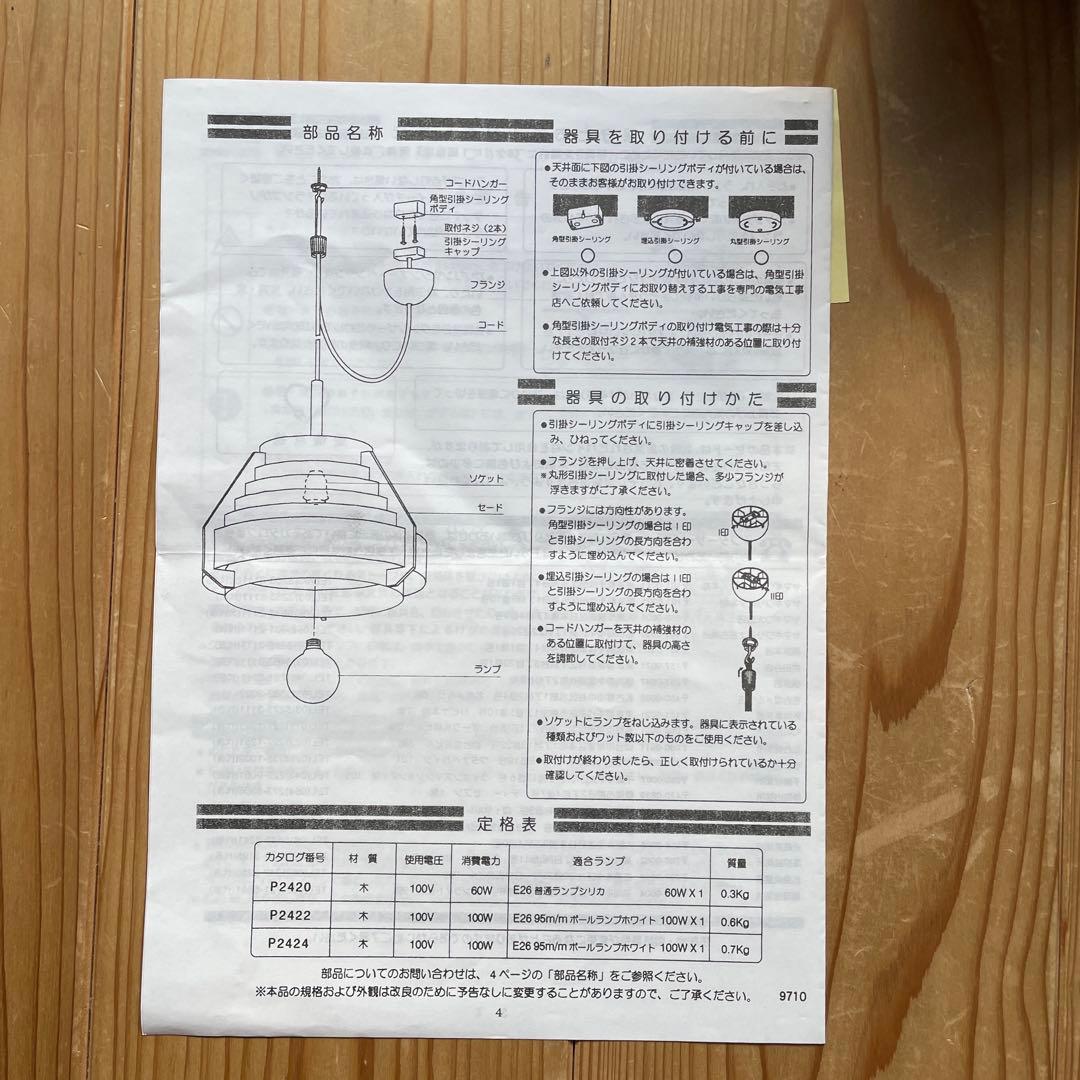 部品名称
コードハンガー
角型引掛シーリング
ボディ
取付ネジ（2本）
引掛シーリング
キャップ
フランジ
コード
ソケット
セード
ランプ
器具を取り付ける前に
●天井面に下図の引掛シーリングボディが付いている場合は、
そのままお客様がお取り付けできます。
角型引掛シーリング 埋込引掛シーリング 丸型引掛シーリング
○ ○ ○
●上図以外の引掛シーリングが付いている場合は、角型引掛
シーリングボディにお取り替えする工事を専門の電気工事
店へご依頼してください。
●角型引掛シーリングボディの取り付け電気工事の際は十分
な長さの取付ネジ2本で天井の補強材のある位置に取り付
けてください。
器具の取り付けかた
●引掛シーリングボディに引掛シーリングキャップを差し込
み、ひねってください。
●フランジを押し上げ、天井に密着させてください。
※丸形引掛シーリングに取付した場合、多少フランジが
浮きますがご了承ください。
●フランジには方向性があります。
角型引掛シーリングの場合はI印
と引掛シーリングの長方向を合わ
すように埋め込んでください。
I印
●埋込引掛シーリングの場合はII印
と引掛シーリングの長方向を合わ
すように埋め込んでください。
II印
●コードハンガーを天井の補強材の
ある位置に取付けて、器具の高さ
を調節してください。
●ソケットにランプをねじ込みます。器具に表示されている
種類およびワット数以下のものをご使用ください。
●取付けが終わりましたら、正しく取付けられているか十分
確認してください。
定格表
カタログ番号 材質 使用電圧 消費電力 適合ランプ 質量
P2420 木 100V 60W E26 普通ランプシリカ 60W X 1 0.3Kg
P2422 木 100V 100W E26 95m/m ボールランプホワイト 100W X 1 0.6Kg
P2424 木 100V 100W E26 95m/m ボールランプホワイト 100W X 1 0.7Kg
部品についてのお問い合わせは、4ページの「部品名称」をご参照ください。
※本品の規格および外観は改良のために予告なしに変更することがありますので、ご了承ください。 9710
4